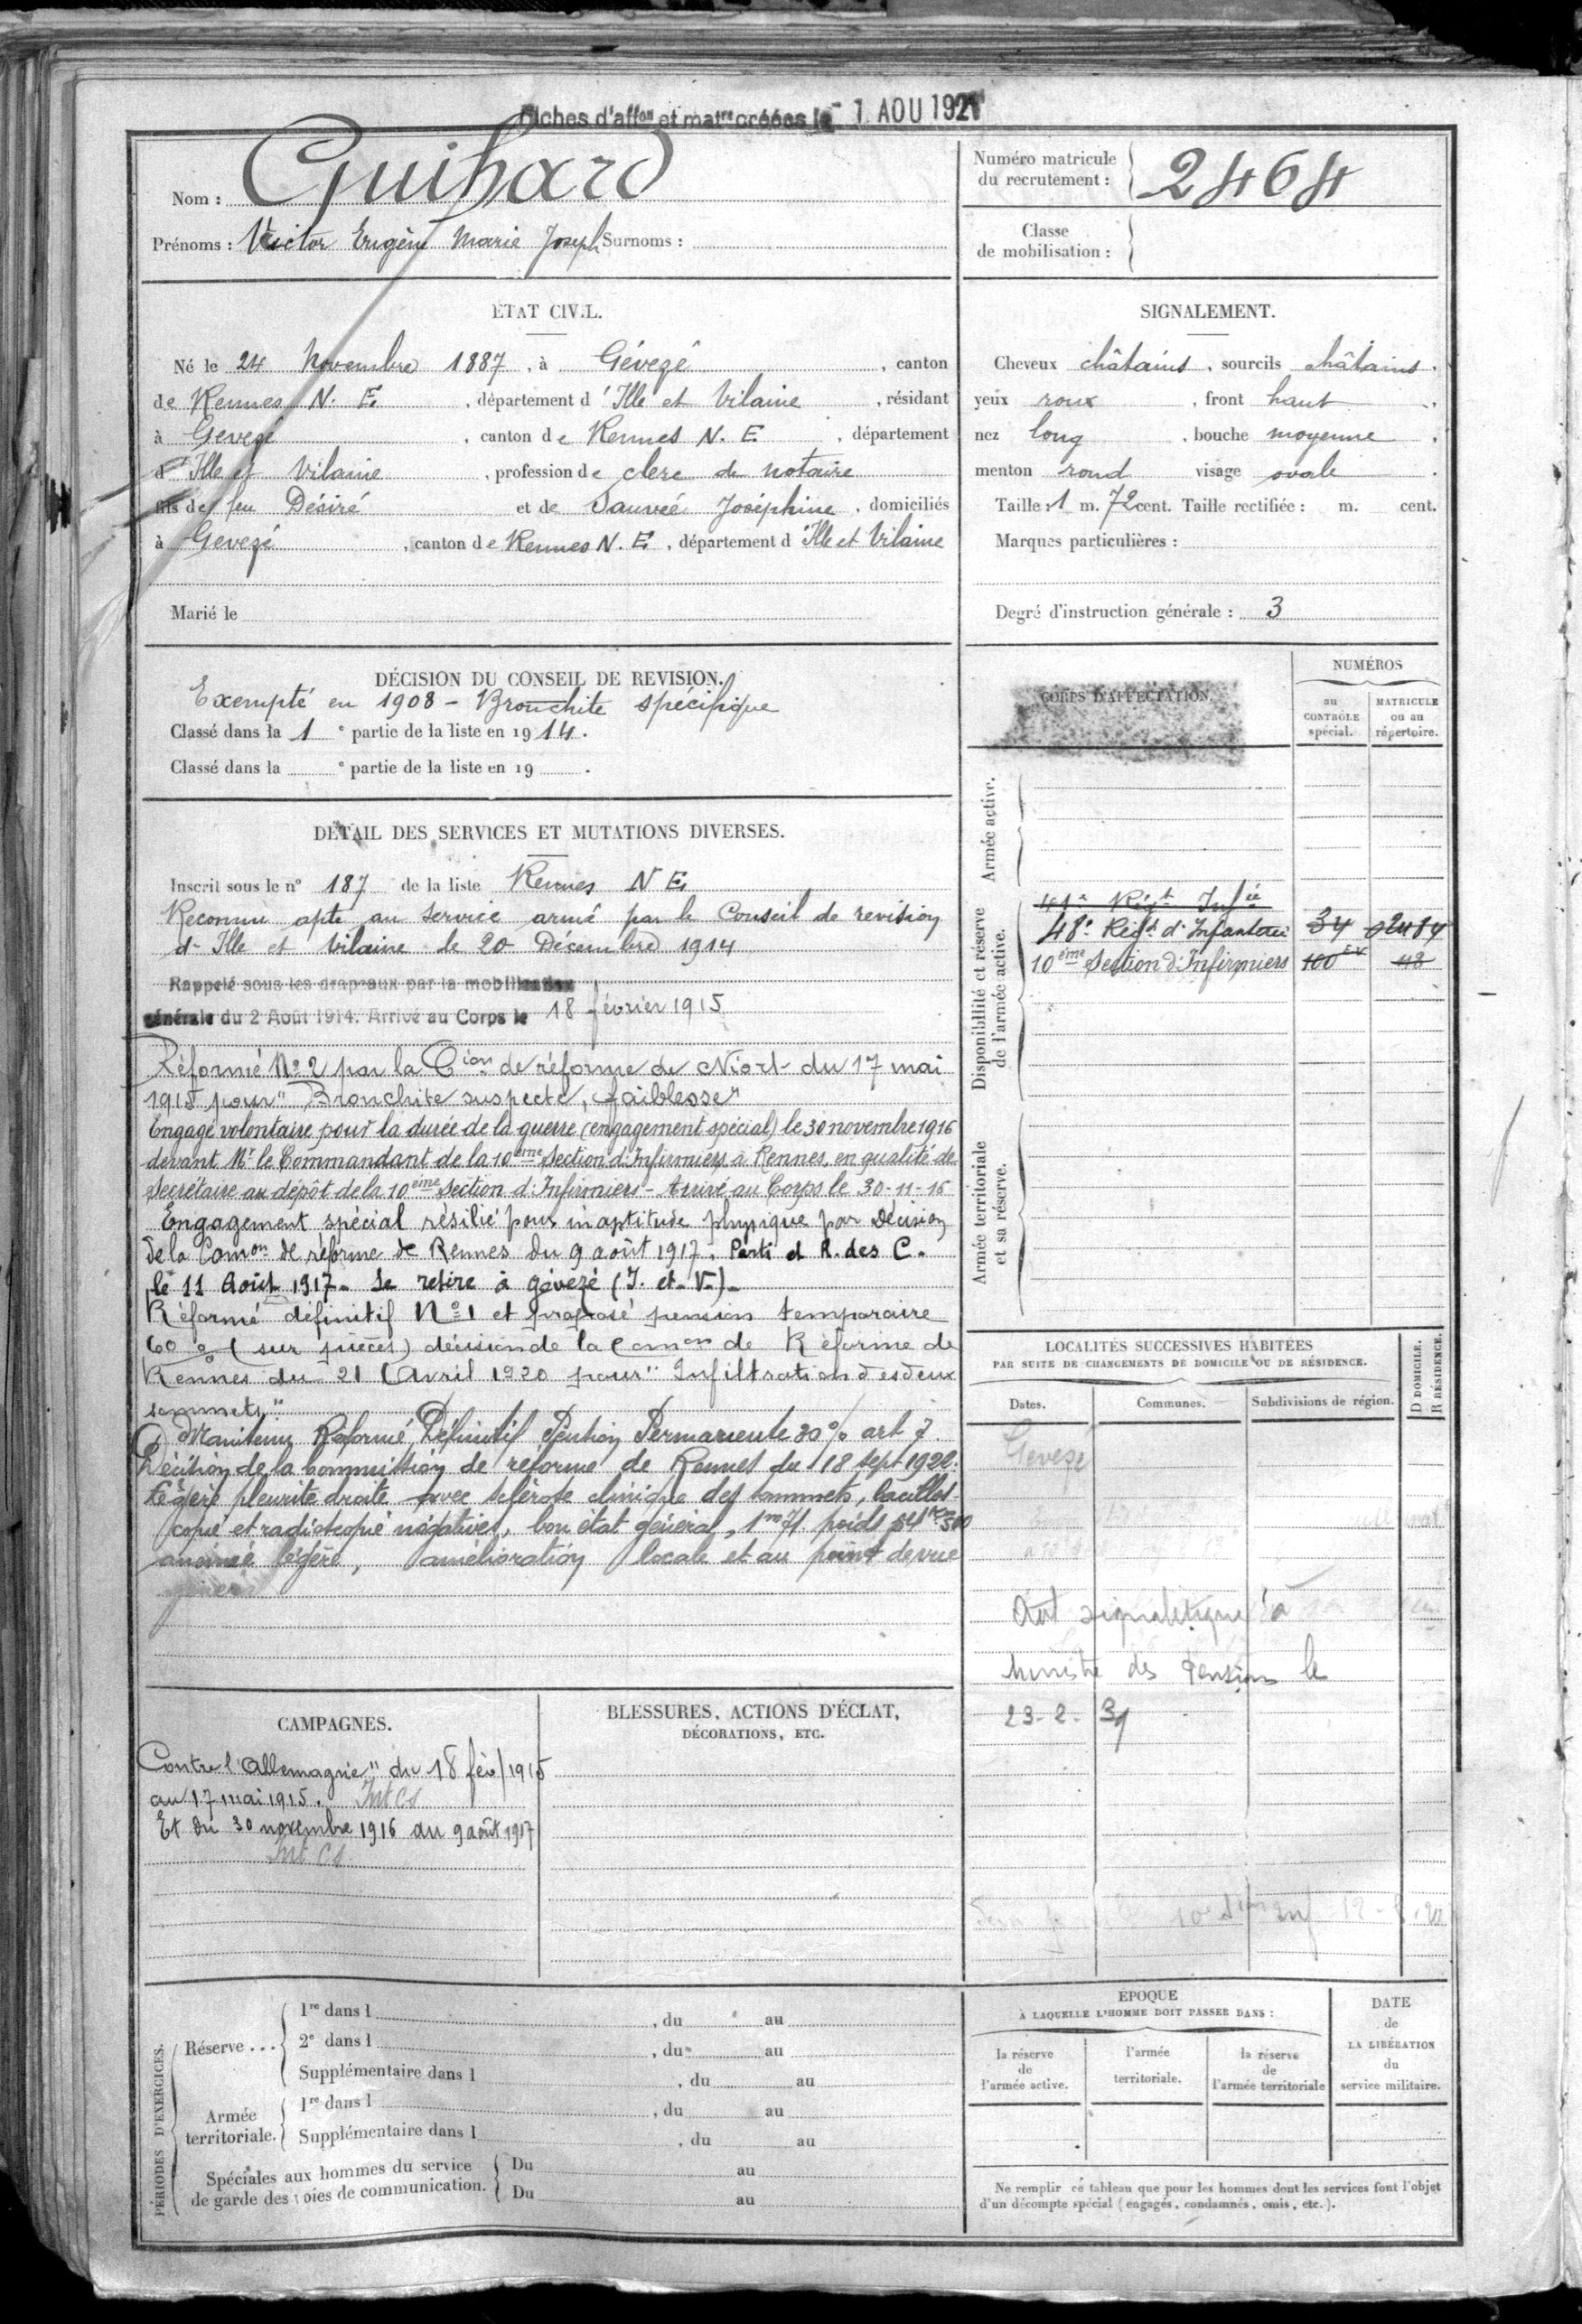 Fiches d'affon et matre créées le - 1 AOU 192
Nom : Guihard
Prénoms : Victor Eugène Marie Joseph Surnoms :
Numéro matricule du recrutement : 2464
Classe de mobilisation :
ÉTAT CIVIL.
Né le 24 Novembre 1887, à Gévezé, canton
de Rennes N. E., département d'Ille et Vilaine, résidant
à Gevezé, canton de Rennes N. E., département
d'Ille et Vilaine, profession de clerc de notaire
fils de feu Désiré et de Sauvée Joséphine, domiciliés
à Gevezé, canton de Rennes N. E., département d'Ille et Vilaine
Marié le
SIGNALEMENT.
Cheveux châtains, sourcils châtains.
yeux roux, front haut,
nez long, bouche moyenne,
menton rond visage ovale.
Taille : 1 m. 72 cent. Taille rectifiée : m. cent.
Marques particulières :
Degré d'instruction générale : 3
DÉCISION DU CONSEIL DE REVISION.
Exempté en 1908 - Bronchite spécifique
Classé dans la 1e partie de la liste en 1914.
Classé dans la e partie de la liste en 19 .
DÉTAIL DES SERVICES ET MUTATIONS DIVERSES.
Inscrit sous le n° 187 de la liste Rennes N E
Reconnu apte au service armé par le Conseil de revision
d'Ille et Vilaine le 20 Décembre 1914
Rappelé sous les drapeaux par la mobilisation
générale du 2 Août 1914. Arrivé au Corps le 18 février 1915
Réformé N° 2 par la Cion de réforme de Niort du 17 mai
1915 pour "Bronchite suspecte, faiblesse"
Engagé volontaire pour la durée de la guerre (engagement spécial) le 30 novembre 1916
devant Mr le Commandant de la 10eme Section d'Infirmiers à Rennes, en qualité de
Secrétaire au dépôt de la 10eme Section d'Infirmiers - Arrivé au Corps le 30-11-16
Engagement spécial résilié pour inaptitude physique par Décision
de la Comon de réforme de Rennes du 9 août 1917. Parti et R. des C.
le 11 Août 1917. Se retire à Gévezé (I. et. V.)
Réformé définitif N° 1 et proposé pension temporaire
60 % (sur pièces) décision de la Comon de Réforme de
Rennes du 21 Avril 1920 pour "Infiltration des deux
sommets"
Maintenu Réformé Définitif Pention Permanente 30 % art 7.
Décision de la commission de réforme de Rennes du 18 Sept 1922.
Légère pleurite droite avec sclérose clinique des sommets, bacillos-
copie et radioscopie négatives, bon état général, 1m71. poids 54k500
anémie légère, amélioration locale et au point de vue
général
CORPS D'AFFECTATION.
NUMÉROS
au CONTRÔLE spécial.
MATRICULE ou au répertoire.
Armée active.
Disponibilité et réserve de l'armée active.
41e Régt Infie
48e Régt d'Infanterie 34 02484
10ème Section d'Infirmiers 100 EV 48
Armée territoriale et sa réserve.
LOCALITÉS SUCCESSIVES HABITÉES
PAR SUITE DE CHANGEMENTS DE DOMICILE OU DE RÉSIDENCE.
D DOMICILE. R RÉSIDENCE.
Dates. Communes. Subdivisions de région.
Gevezé
signalétique à
Ministre des Pensions le
23-2-31
CAMPAGNES.
Contre l'Allemagne" du 18 fév 1915
au 17 mai 1915. Int CS
Et du 30 novembre 1916 au 9 août 1917
Int CS
BLESSURES, ACTIONS D'ÉCLAT,
DÉCORATIONS, ETC.
PÉRIODES D'EXERCICES.
Réserve ...
1re dans l , du au
2e dans l , du au
Supplémentaire dans l , du au
Armée territoriale.
1re dans l , du au
Supplémentaire dans l , du au
Spéciales aux hommes du service de garde des voies de communication.
Du au
Du au
ÉPOQUE
À LAQUELLE L'HOMME DOIT PASSER DANS :
la réserve de l'armée active.
l'armée territoriale.
la réserve de l'armée territoriale
DATE de LA LIBÉRATION du service militaire.
Ne remplir ce tableau que pour les hommes dont les services font l'objet
d'un décompte spécial (engagés, condamnés, omis, etc.).